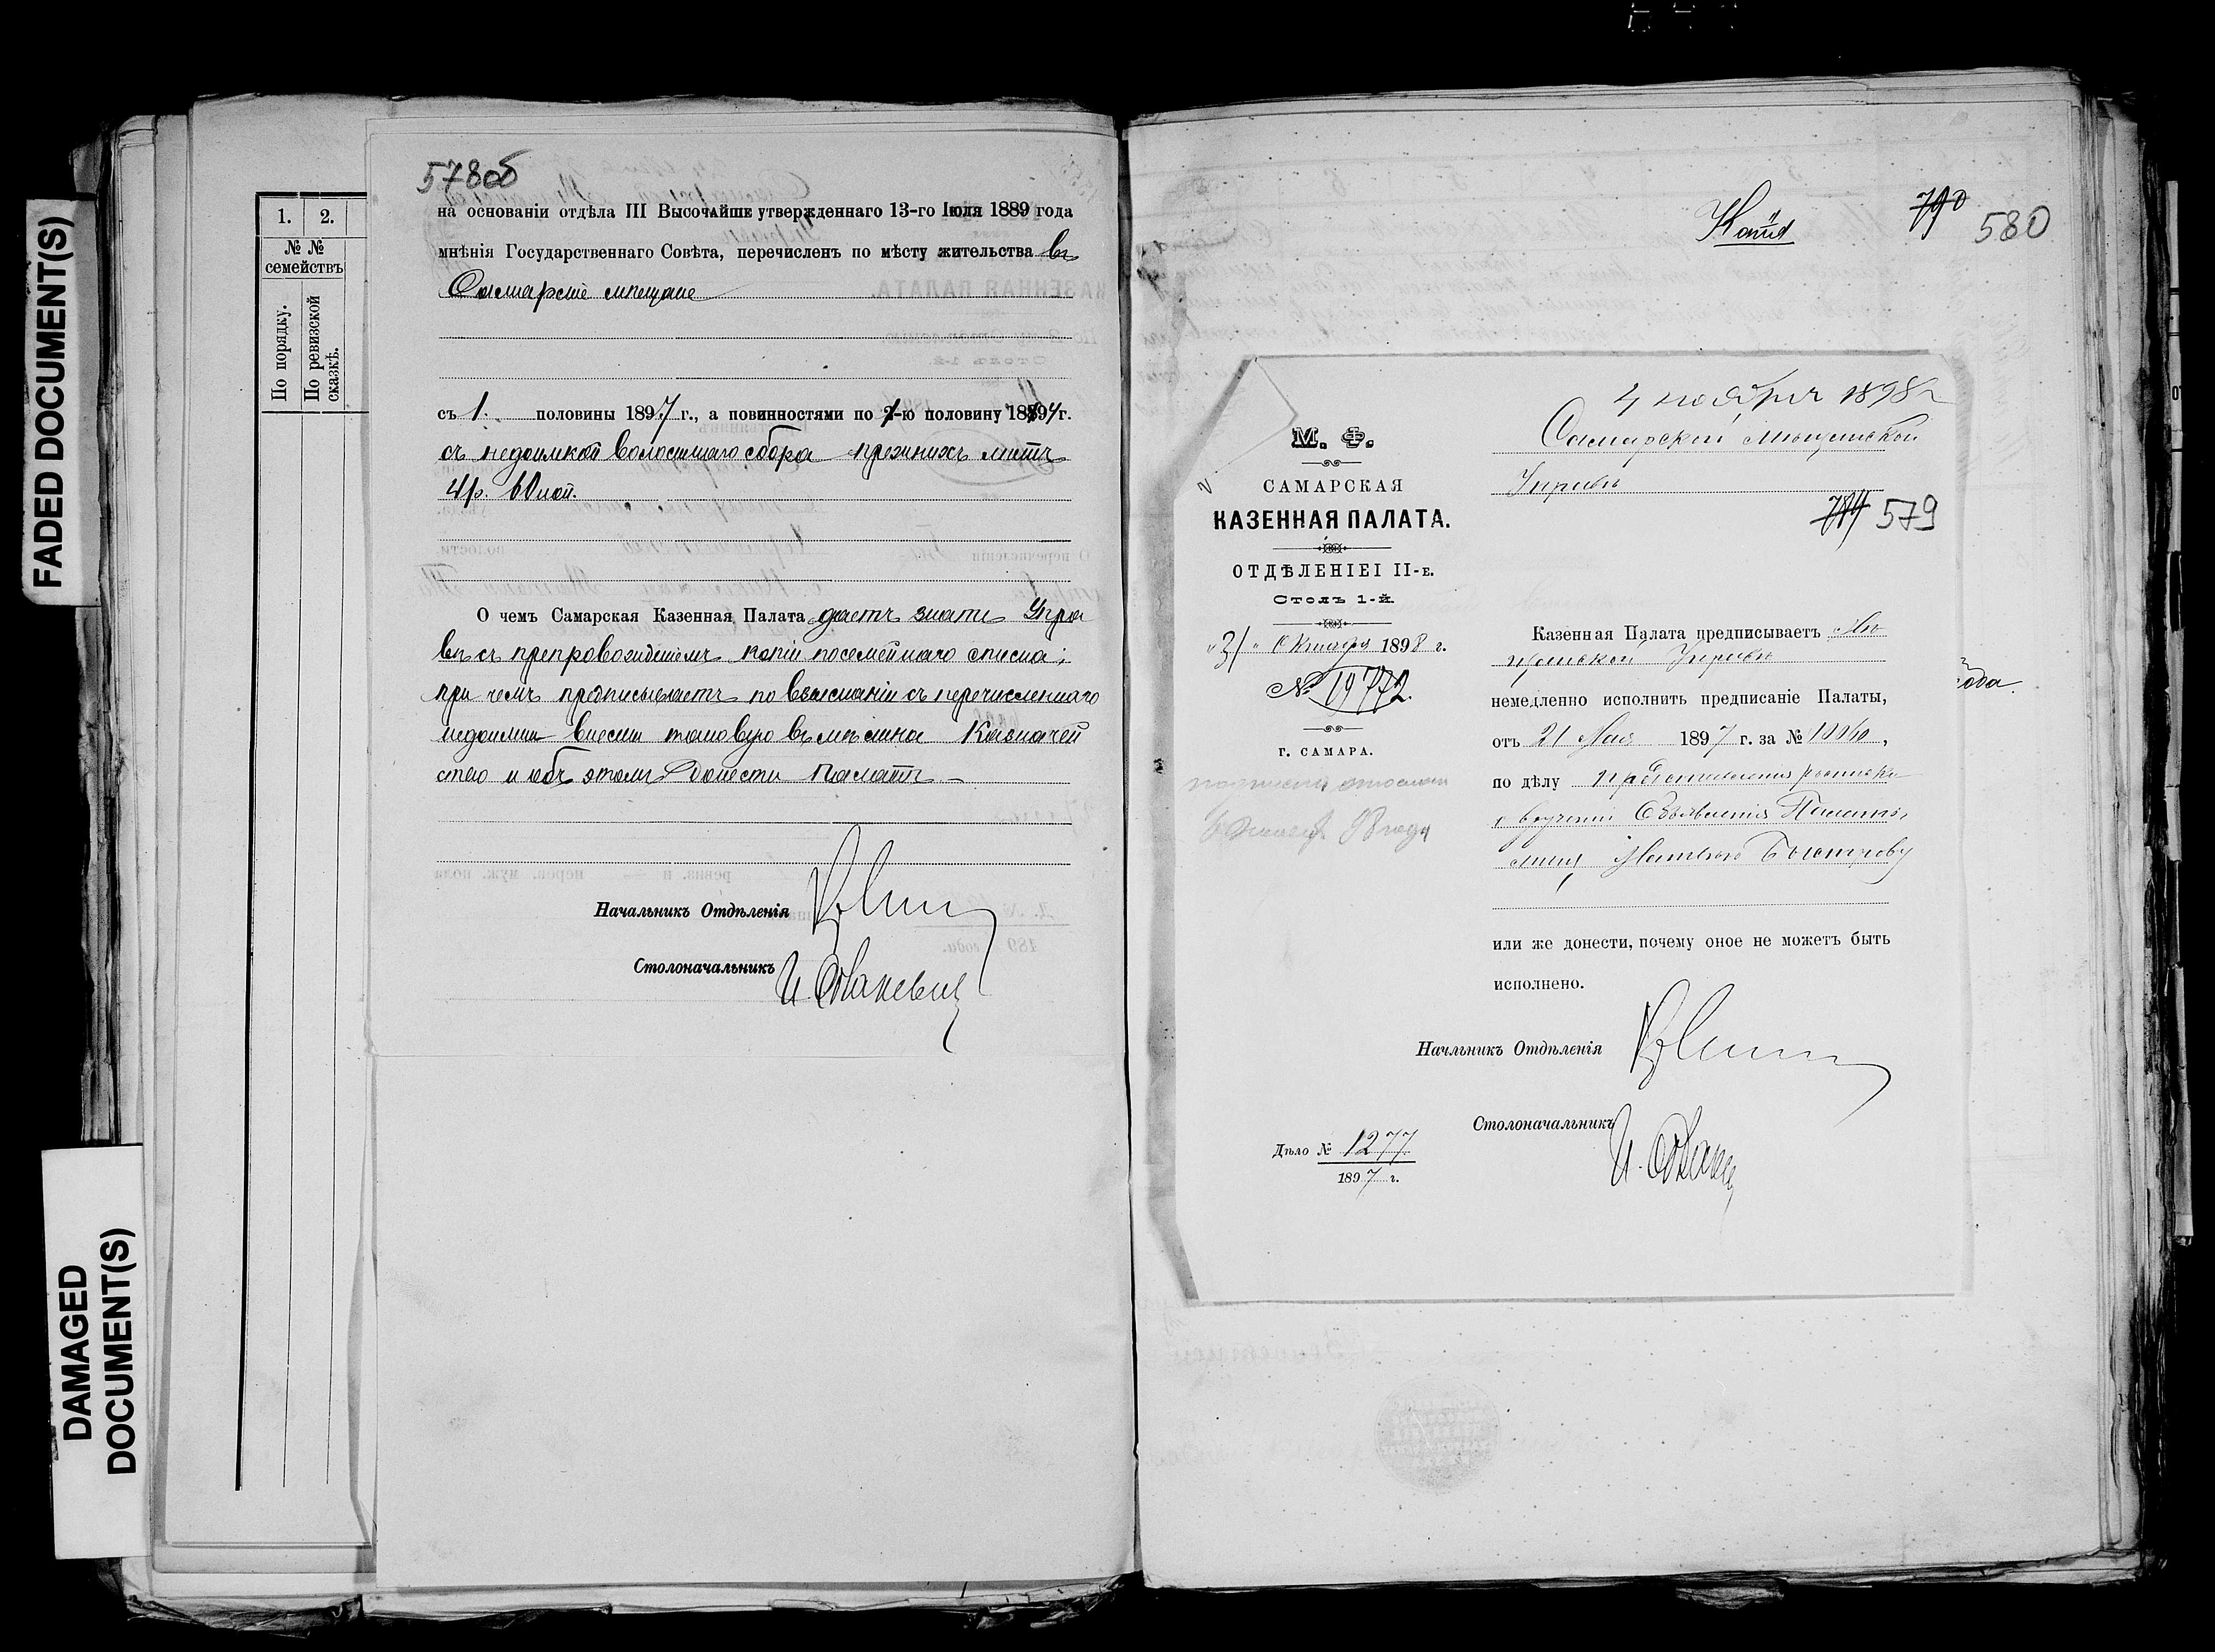 FADED DOCUMENT(S)
DAMAGED
DOCUMENT(S)
1. 2.
№ №
семействъ
По порядку.
По ревизской
сказкѣ.
578об
на основаніи отдѣла III Высочайше утвержденнаго 13-го Іюля 1889 года
мнѣнія Государственнаго Совѣта, перечисленъ по мѣсту жительства въ
Самарскіе мѣщане
съ 1. половины 1897 г., а повинностями по ю половину 189 г.
съ недоимкой волостнаго сбора прежнихъ лѣтъ
4р. 60 коп.
О чемъ Самарская Казенная Палата даетъ знать Упра
вѣ съ препровожденіемъ копіи посемейнаго списка;
при чемъ предписываетъ по взысканіи съ перечисленнаго
недоимки внести таковую въ мѣстное Казначей
ство и объ этомъ донести Палатѣ
Начальникъ Отдѣленія
Столоначальникъ
Копія
790 580
4 ноября 1898 г
Самарской Мѣщанской
Управѣ
579
М. Ф.
САМАРСКАЯ
КАЗЕННАЯ ПАЛАТА.
ОТДѢЛЕНІЕІ II-е.
Столъ 1-й
„31" Октября 1898 г.
№ 19772.
г. САМАРА.
Казенная Палата предписываетъ Мѣ
щанской Управѣ
немедленно исполнить предписаніе Палаты,
отъ 21 Мая 1897 г. за №
по дѣлу представленія росписки
о врученіи Объявленія Палаты,
Быстрову
или же донести, почему оное не можетъ быть
исполнено.
Начльникъ Отдѣленія
Столоначальникъ
Дѣло № 1277
1897 г.
года.